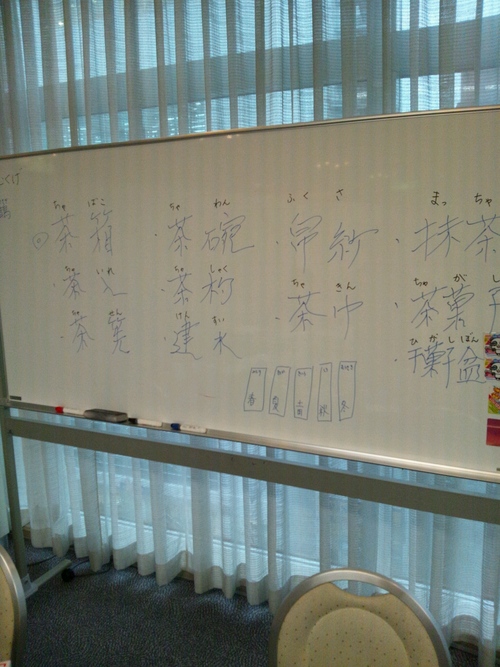 くげ
ちゃ ばこ ちゃ わん ふく さ まっ ちゃ
茶箱 ・茶碗 ・帛紗 ・抹茶
ちゃ いれ ちゃ しゃく ちゃ きん ちゃ が し
・茶入 ・茶杓 ・茶巾 ・茶菓
ちゃ せん けん すい ひ が し ぼん
・茶筅 ・建水 ・干菓子盆
春 夏 土用 秋 冬